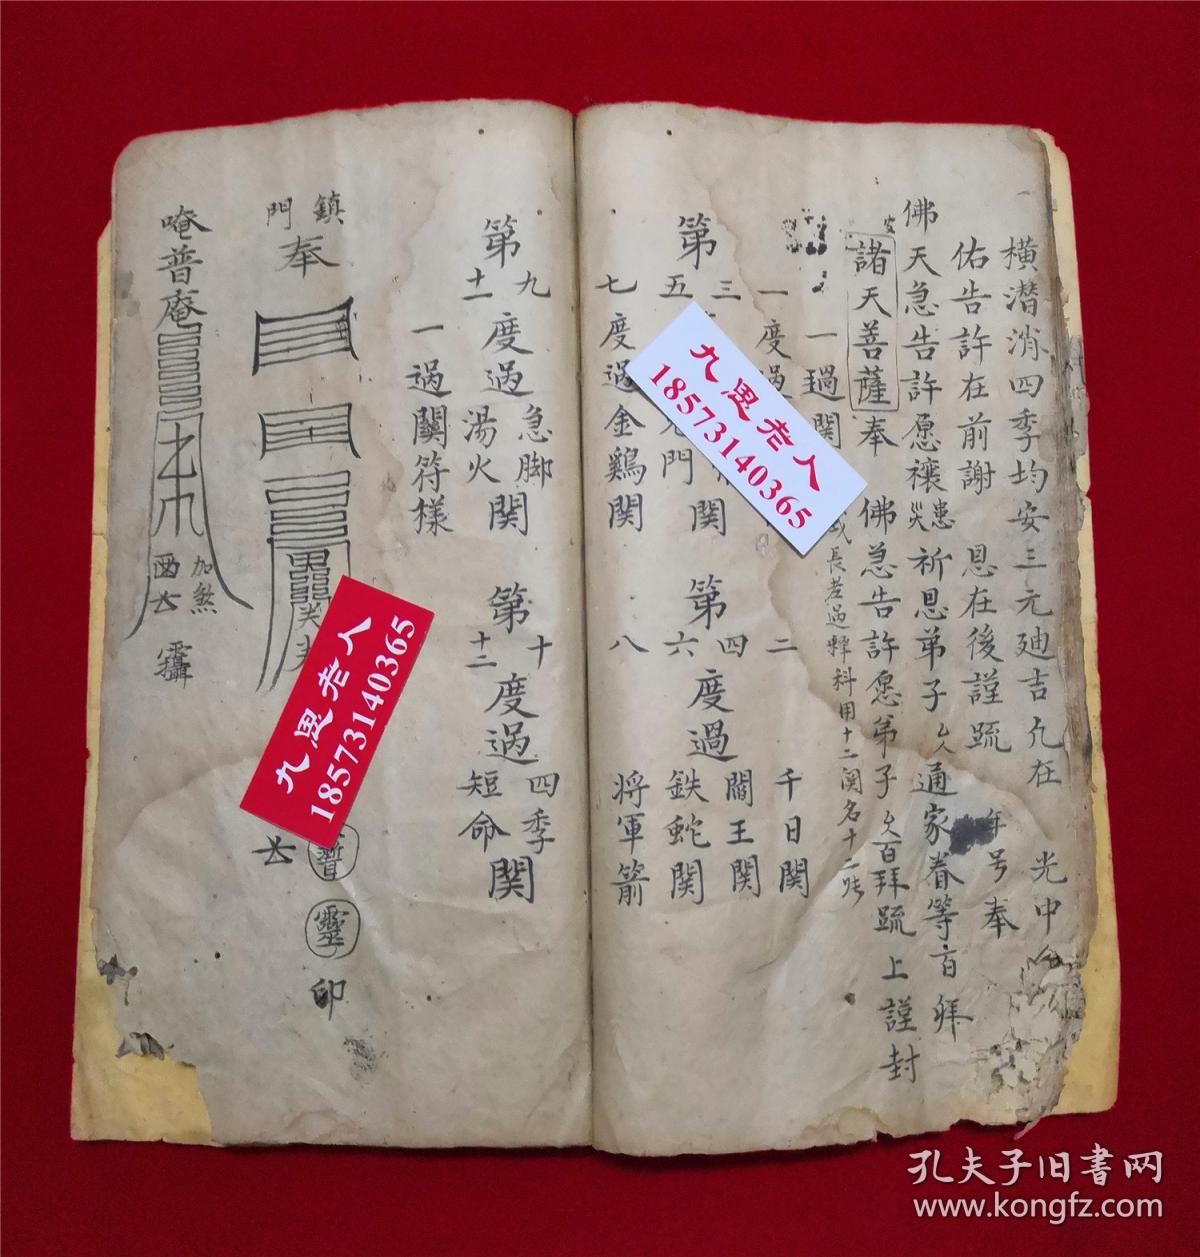 橫潛消四季均安三元廸吉凢在 光中
佑告許在前謝 恩在後謹疏 年号奉
佛天急告許愿禳災患祈恩弟子厶人通家眷等百拜
諸天菩薩奉 佛急告許愿弟子 百拜疏上謹封
一過関
長老過 科用十二関名十二
第
一度過
三 関
五 門
七度過金鷄関
第
二 千日関
四 閻王関
六度過鉄蛇関
八 将軍箭
第
九 急脚
十一度過湯火関
第
十 四季
十二度過短命関
一過関符様
鎮門
奉
唵普庵
加煞
靈
印
九思老人
18573140365
九思老人
18573140365
孔夫子旧书网
www.kongfz.com